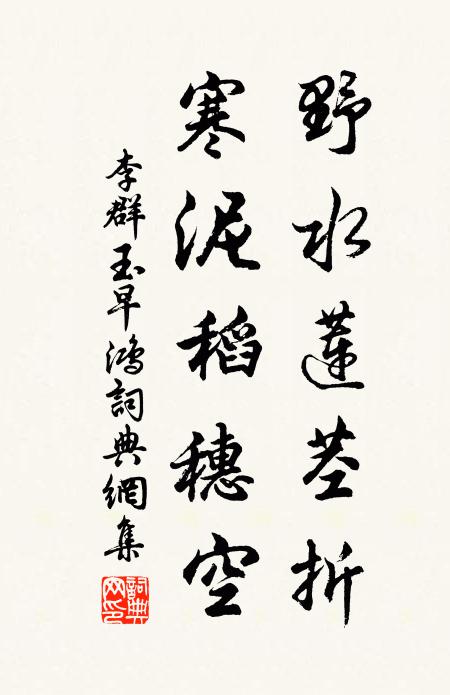 野水蓮茎折
寒泥稻穗空
李群玉早鴻詞典網集
詞典
网印